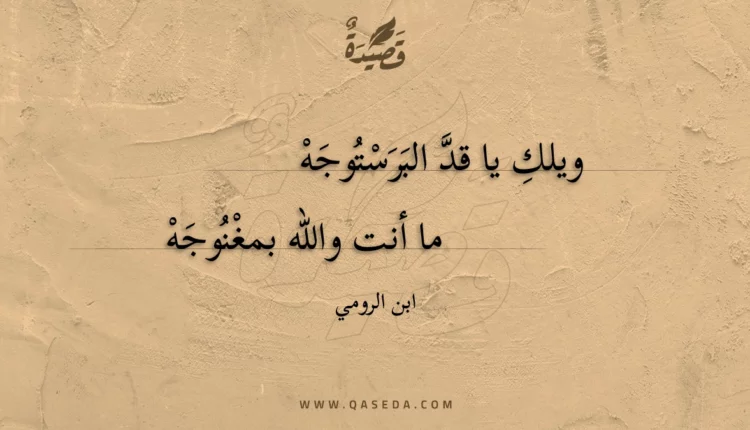 قَصِيْدَةٌ
ويلكِ يا قدَّ البَرَسْتُوجَهْ
ما أنت والله بمغْنُوجَهْ
ابن الرومي
WWW.QASEDA.COM